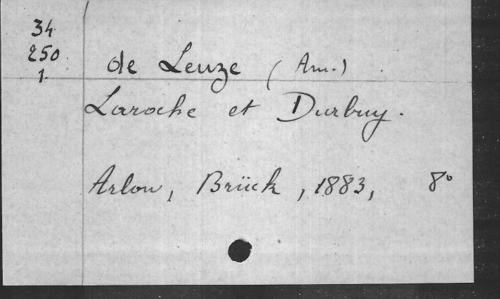 34
250
1
de Leuze (Am.)
Laroche et Durbuy.
Arlon, Brück, 1883, 8°